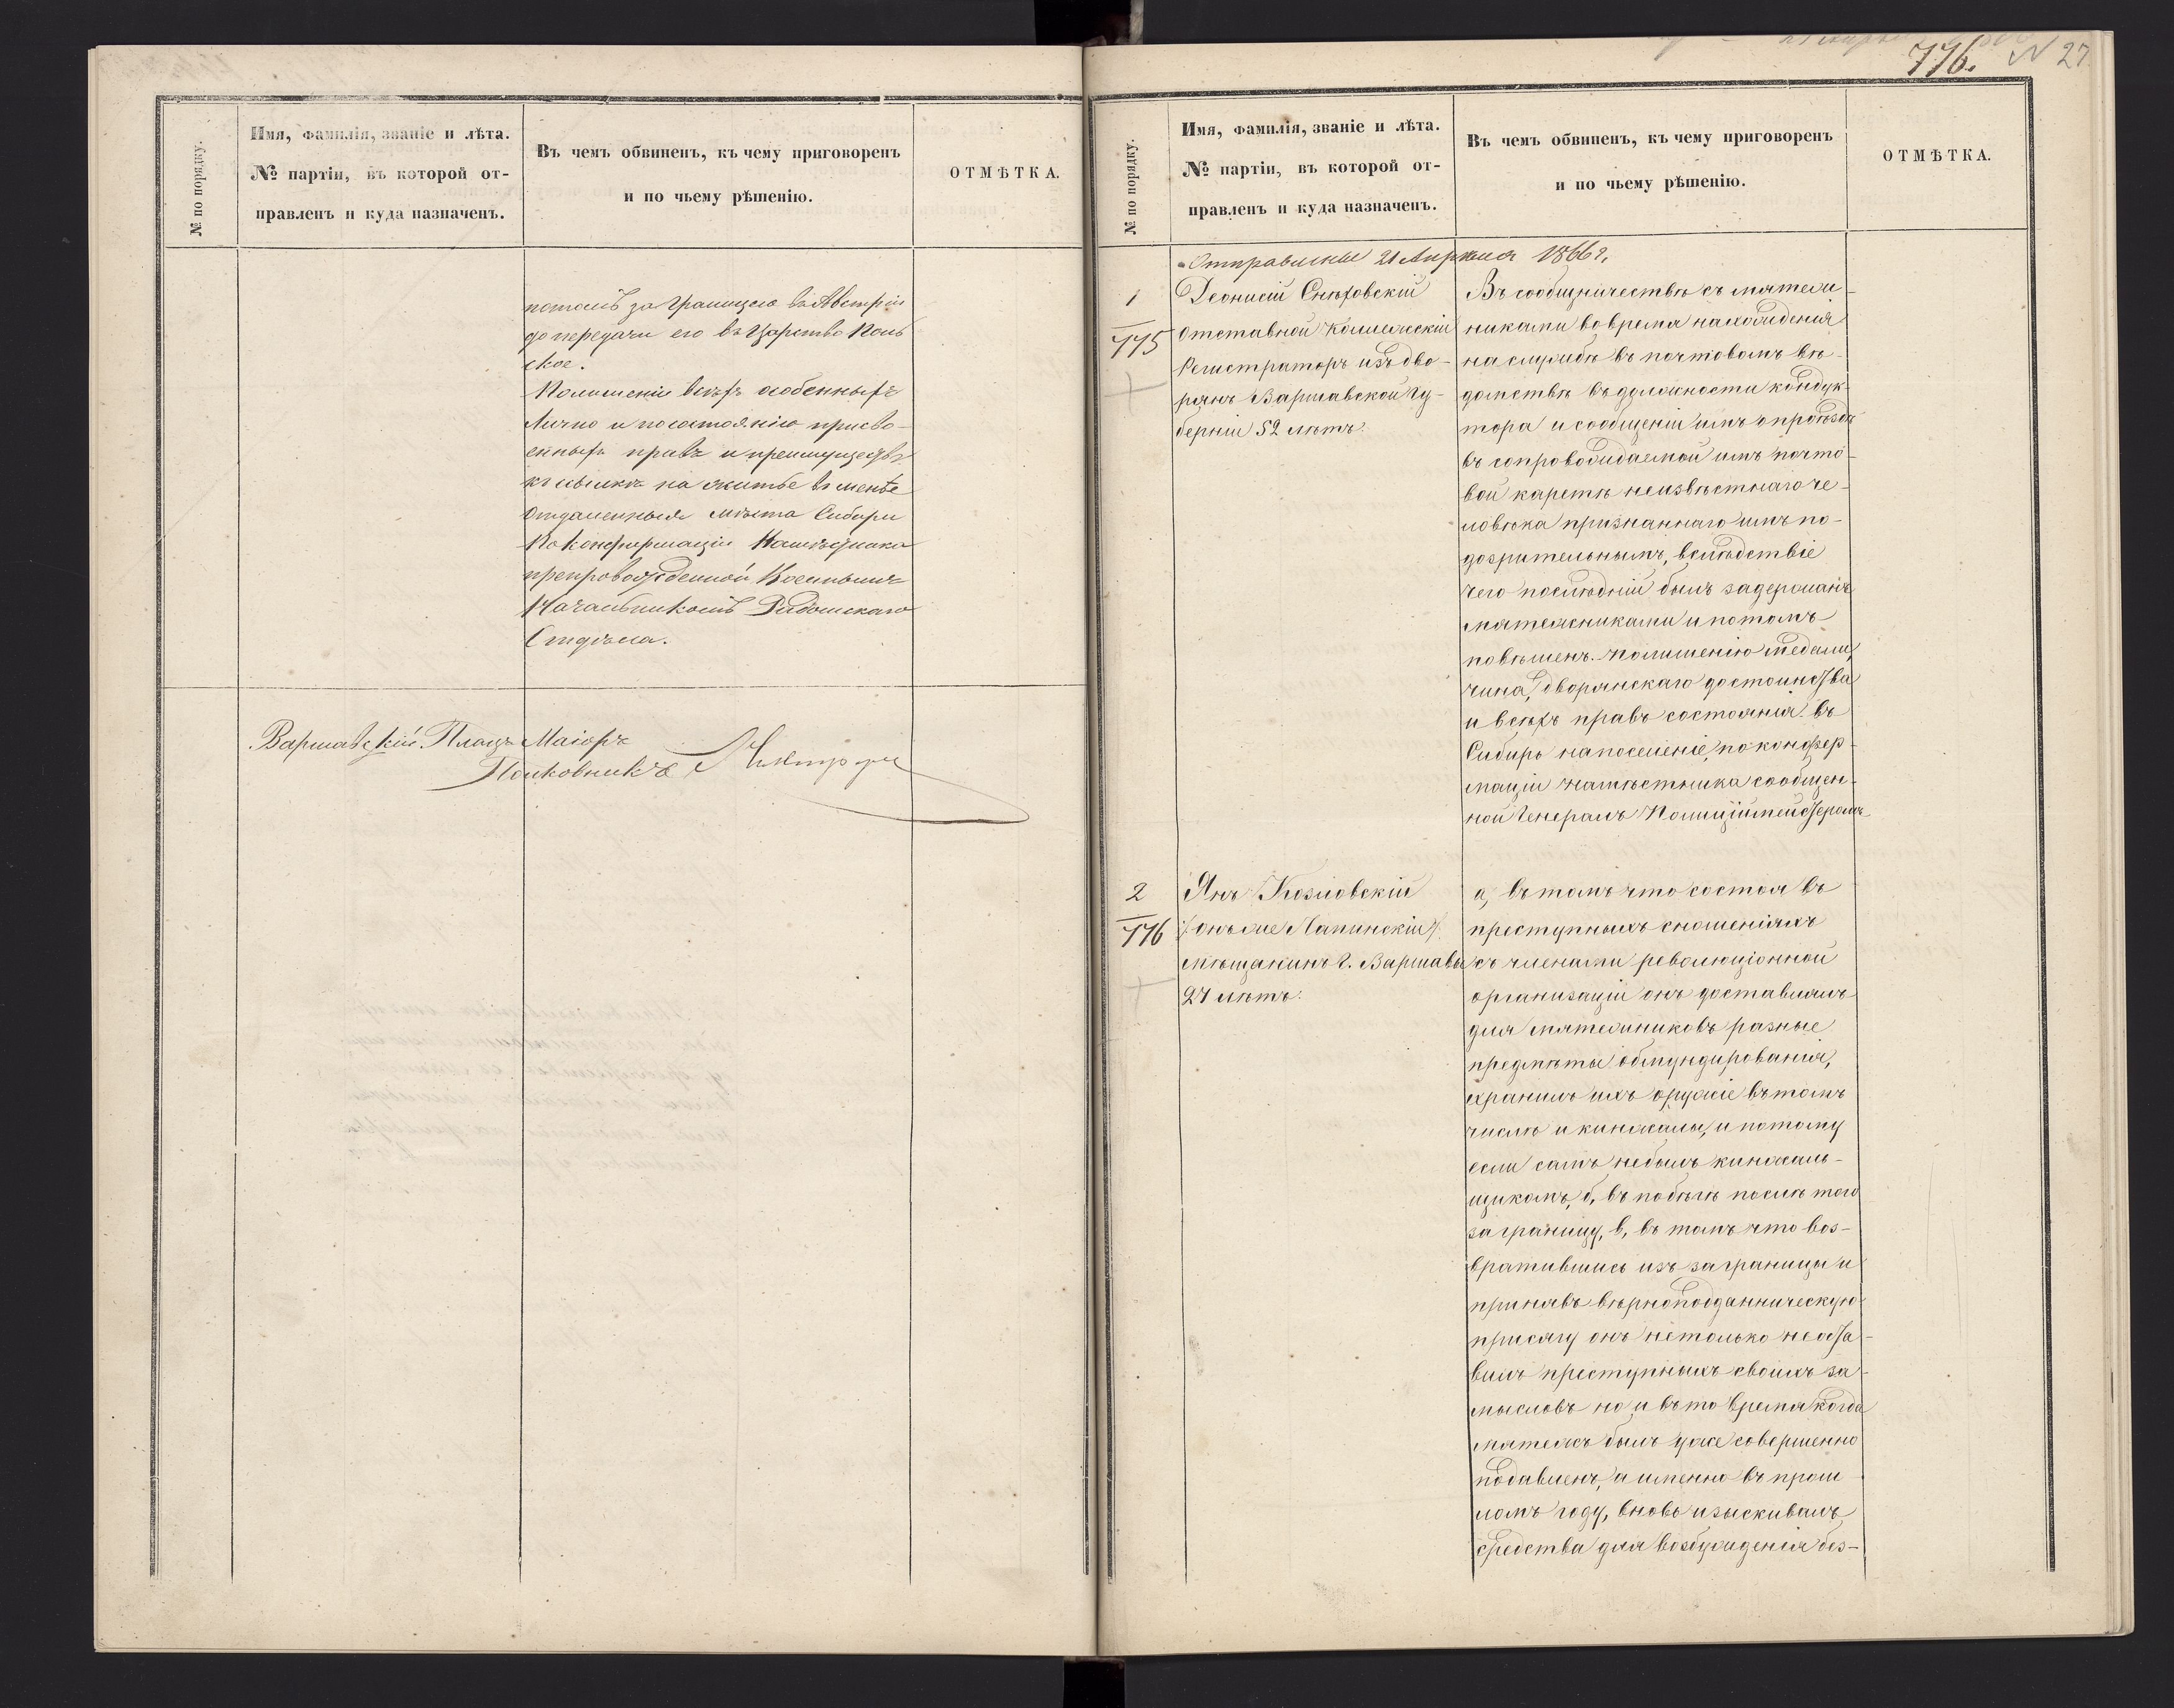 № по порядку.
Имя, фамилія, званіе и лѣта.
№ партіи, въ которой от-
правленъ и куда назначенъ.
Въ чемъ обвиненъ, къ чему приговоренъ
и по чьему рѣшенію.
ОТМѢТКА.
потомъ за границею въ Австріи
до передачи его въ Царство Поль
ское.
По лишеніи всѣхъ особенныхъ
лично и по состоянію присво-
енныхъ правъ и преимуществъ
къ ссылкѣ на житье въ менѣе
отдаленныя мѣста Сибири
По Конфирмаціи Намѣстника
препровожденной Военнымъ
Начальникомъ Радомскаго
Отдѣла.
Варшавскій Плацъ Маіоръ
Полковникъ
776. N 27
№ по порядку.
Имя, фамилія, званіе и лѣта.
№ партіи, въ которой от-
правленъ и куда назначенъ.
Въ чемъ обвиненъ, къ чему приговоренъ
и по чьему рѣшенію.
ОТМѢТКА.
Отправлены 21 Апрѣля 1866 г.
1
775
Деонисій Снѣховскій
отставной Коллежскій
Регистраторъ изъ дво-
рянъ Варшавской Гу-
берніи 52 лѣтъ.
Въ сообщничествѣ съ мятеж-
никами во время нахожденія
на службѣ въ почтовомъ вѣ-
домствѣ въ должности кондук-
тора и сообщеніи имъ о проѣздѣ
въ сопровождаемой имъ почто-
вой каретѣ неизвѣстнаго че-
ловѣка признаннаго имъ по-
дозрительнымъ, вслѣдствіе
чего послѣдній былъ задержанъ
мятежниками и потомъ
повѣшенъ. По лишенію медали,
чина, дворянскаго достоинства
и всѣхъ правъ состоянія въ
Сибирь на поселеніе, по конфер-
маціи намѣстника сообщен-
ной Генералъ Полиціймейстеромъ
2
776
Янъ Козловскій
/: онъ же Лапинскій :/
мѣщанинъ г. Варшавы
27 лѣтъ.
а, въ томъ что состоя въ
преступныхъ сношеніяхъ
съ членами революціонной
организаціи онъ доставлялъ
для мятежниковъ разные
предмѣты обмундированія,
хранилъ ихъ оружіе въ томъ
числѣ и кинжалы, и потому
если самъ не былъ кинжаль-
щикомъ, б, въ побѣгѣ послѣ того
за границу, в, въ томъ что воз-
вратившись изъ за границы и
принявъ вѣрноподданническую
присягу онъ не только не оста-
вилъ преступныхъ своихъ за-
мысловъ но и въ то время когда
мятежъ былъ уже совершенно
подавленъ, а именно въ прош
ломъ году, вновь изыскивалъ
средства для возбужденія без-